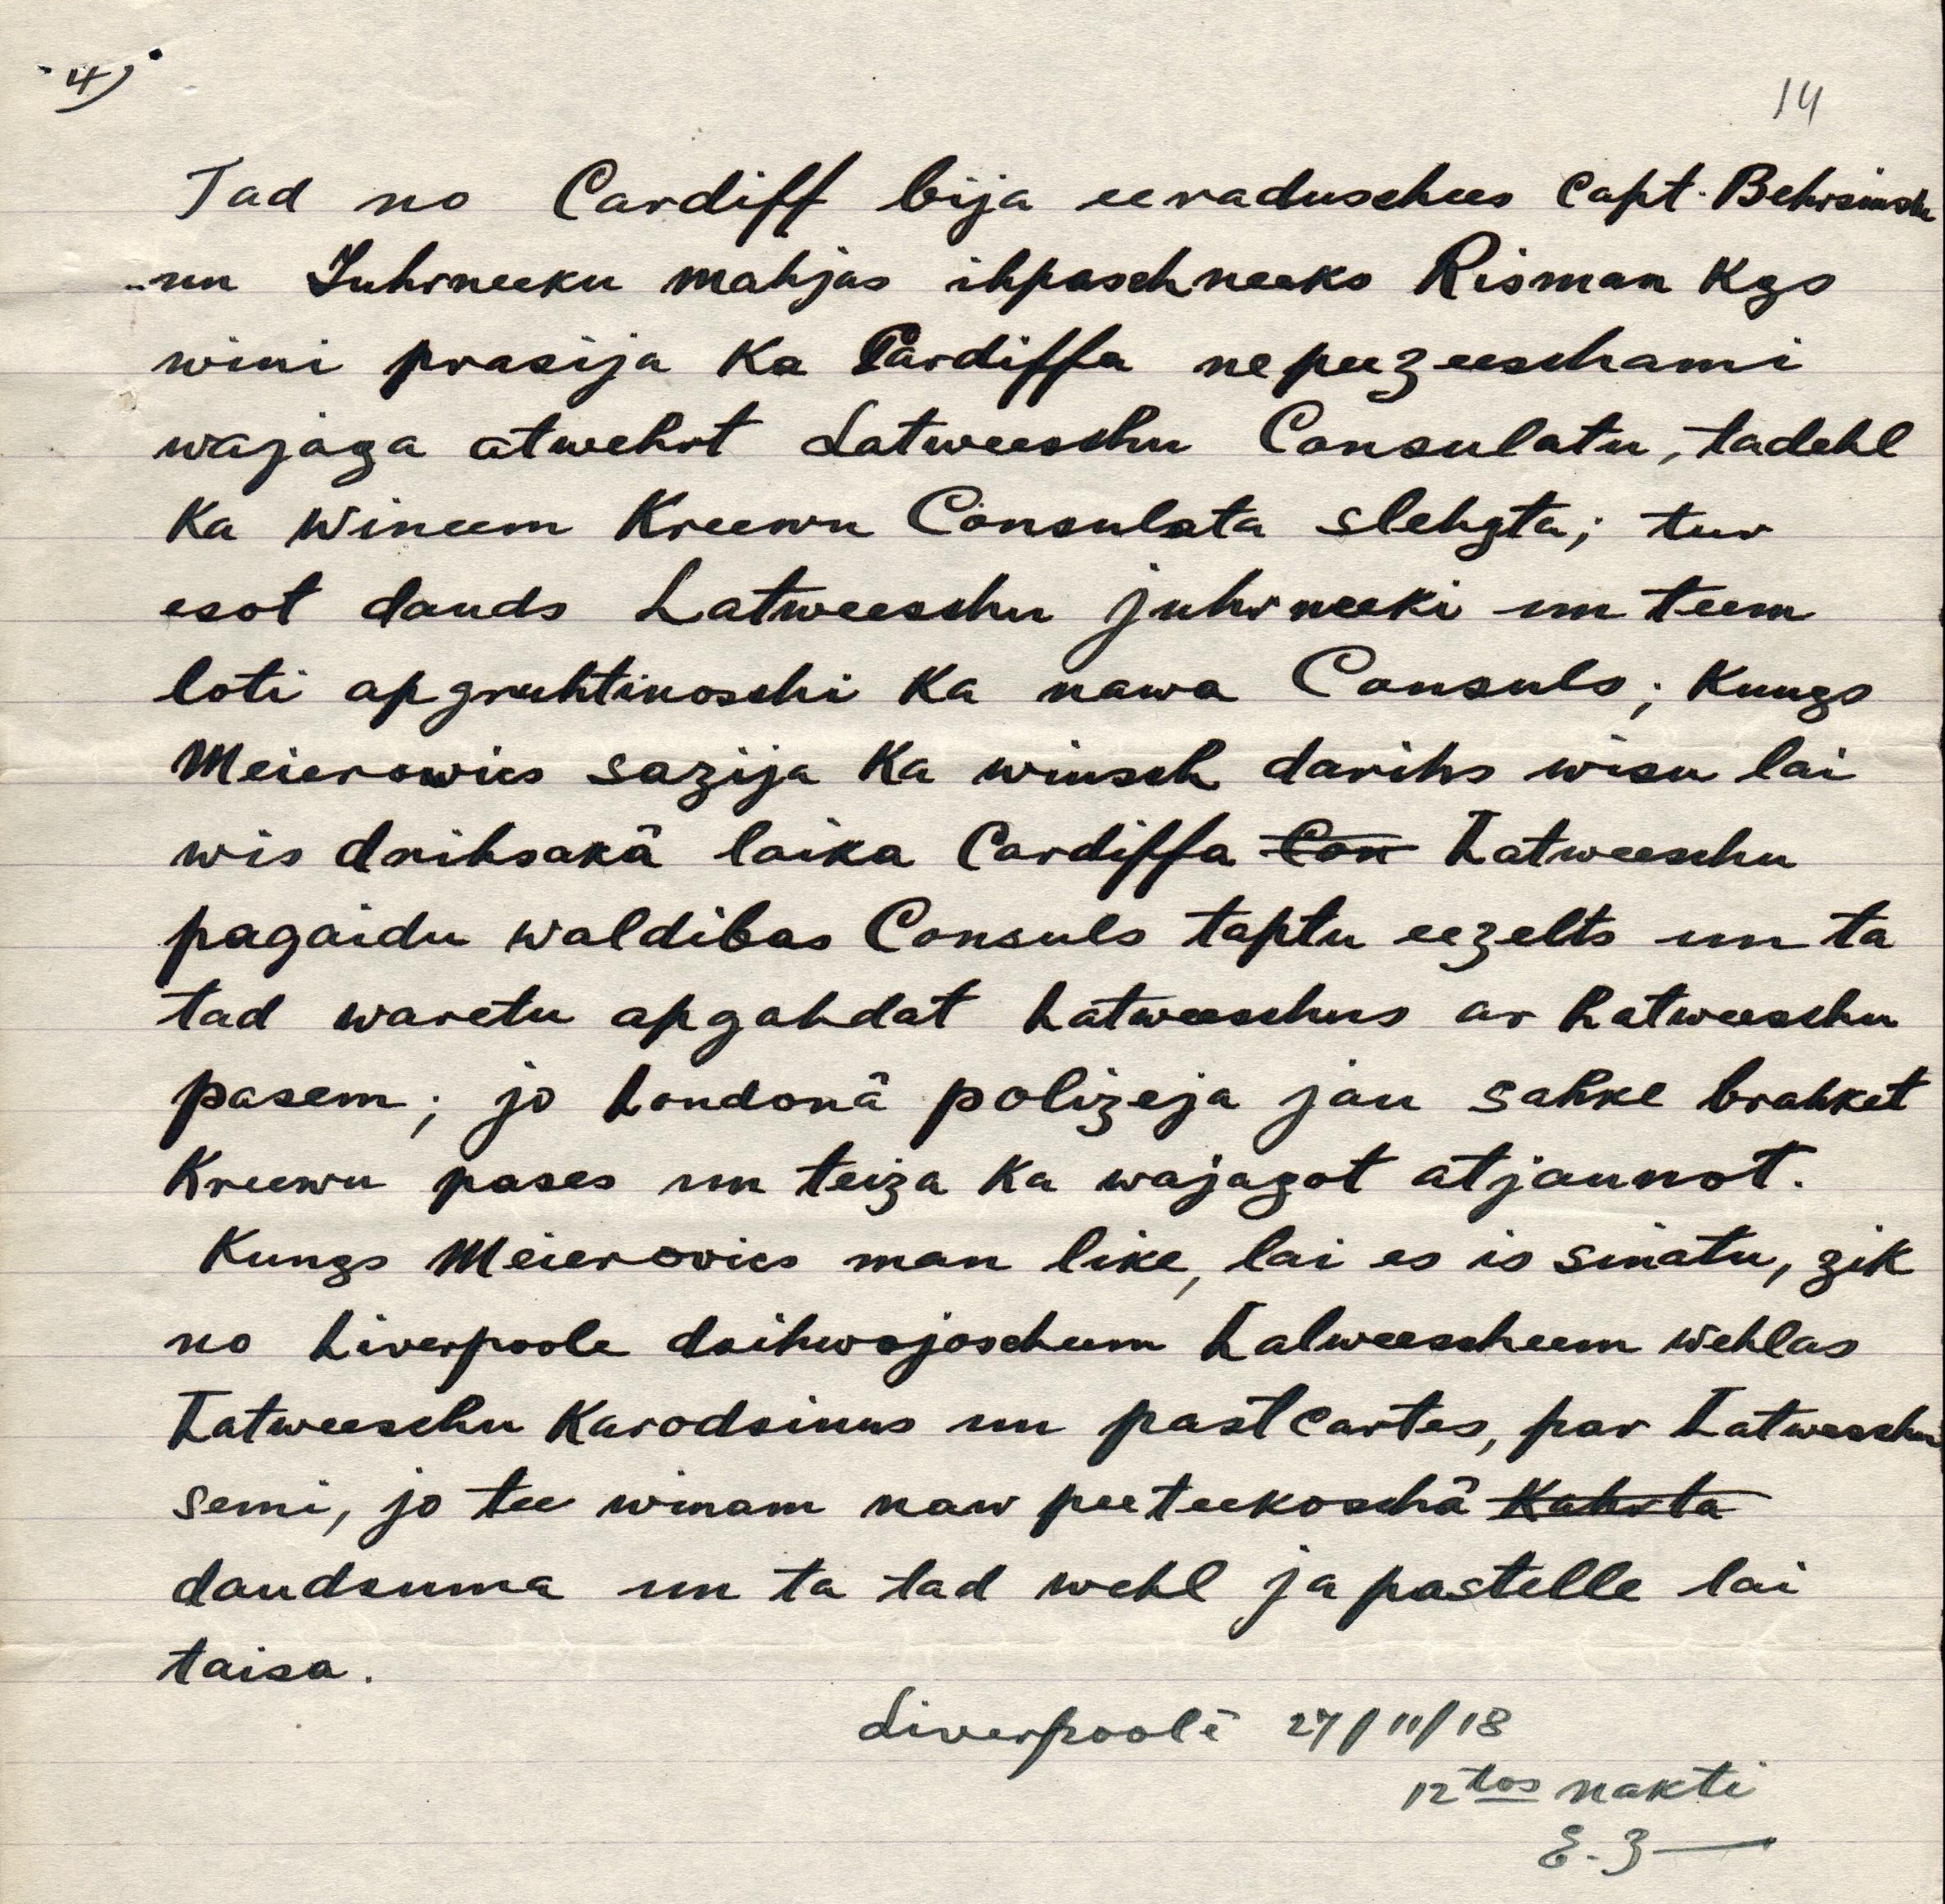 4)
14
Tad no Cardiff bija eeradusches Capt. Behrsinsch
un Juhrneeku mahjas ihpaschneeks Risman Kgs
wini prasija Ka Cardiffa nepeezeeschami
wajaga atwehrt Latweeschu Consulatu, tadehl
Ka Wineem Kreewu Consulata slehgta; tur
esot dauds Latweeschu juhrneeki un teem
loti apgruhtinoschi Ka nawa Consuls; Kungs
Meierowics sazija Ka winsch darihs wisu lai
wis drihsakâ laika Cardiffa Con Latweeschu
pagaidu waldibas Consuls taptu eezelts un ta
tad waretu apgahdat Latweeschus ar Latweeschu
pasem; jo Londonâ polizeja jau sahke brahket
Kreewu pases un teiza Ka wajagot atjaunot.
Kungs Meierovics man like, lai es is sinatu, zik
no Liverpoole dsihwojoscheem Latweescheem wehlas
Latweeschu Karodsinus un past cartes, par Latweeschu
semi, jo tee winam naw peeteekoschâ Kahrta
daudsuma un ta tad wehl japastelle lai
taisa.
Liverpoolē 27/11/18
12tos nakti
E. Z